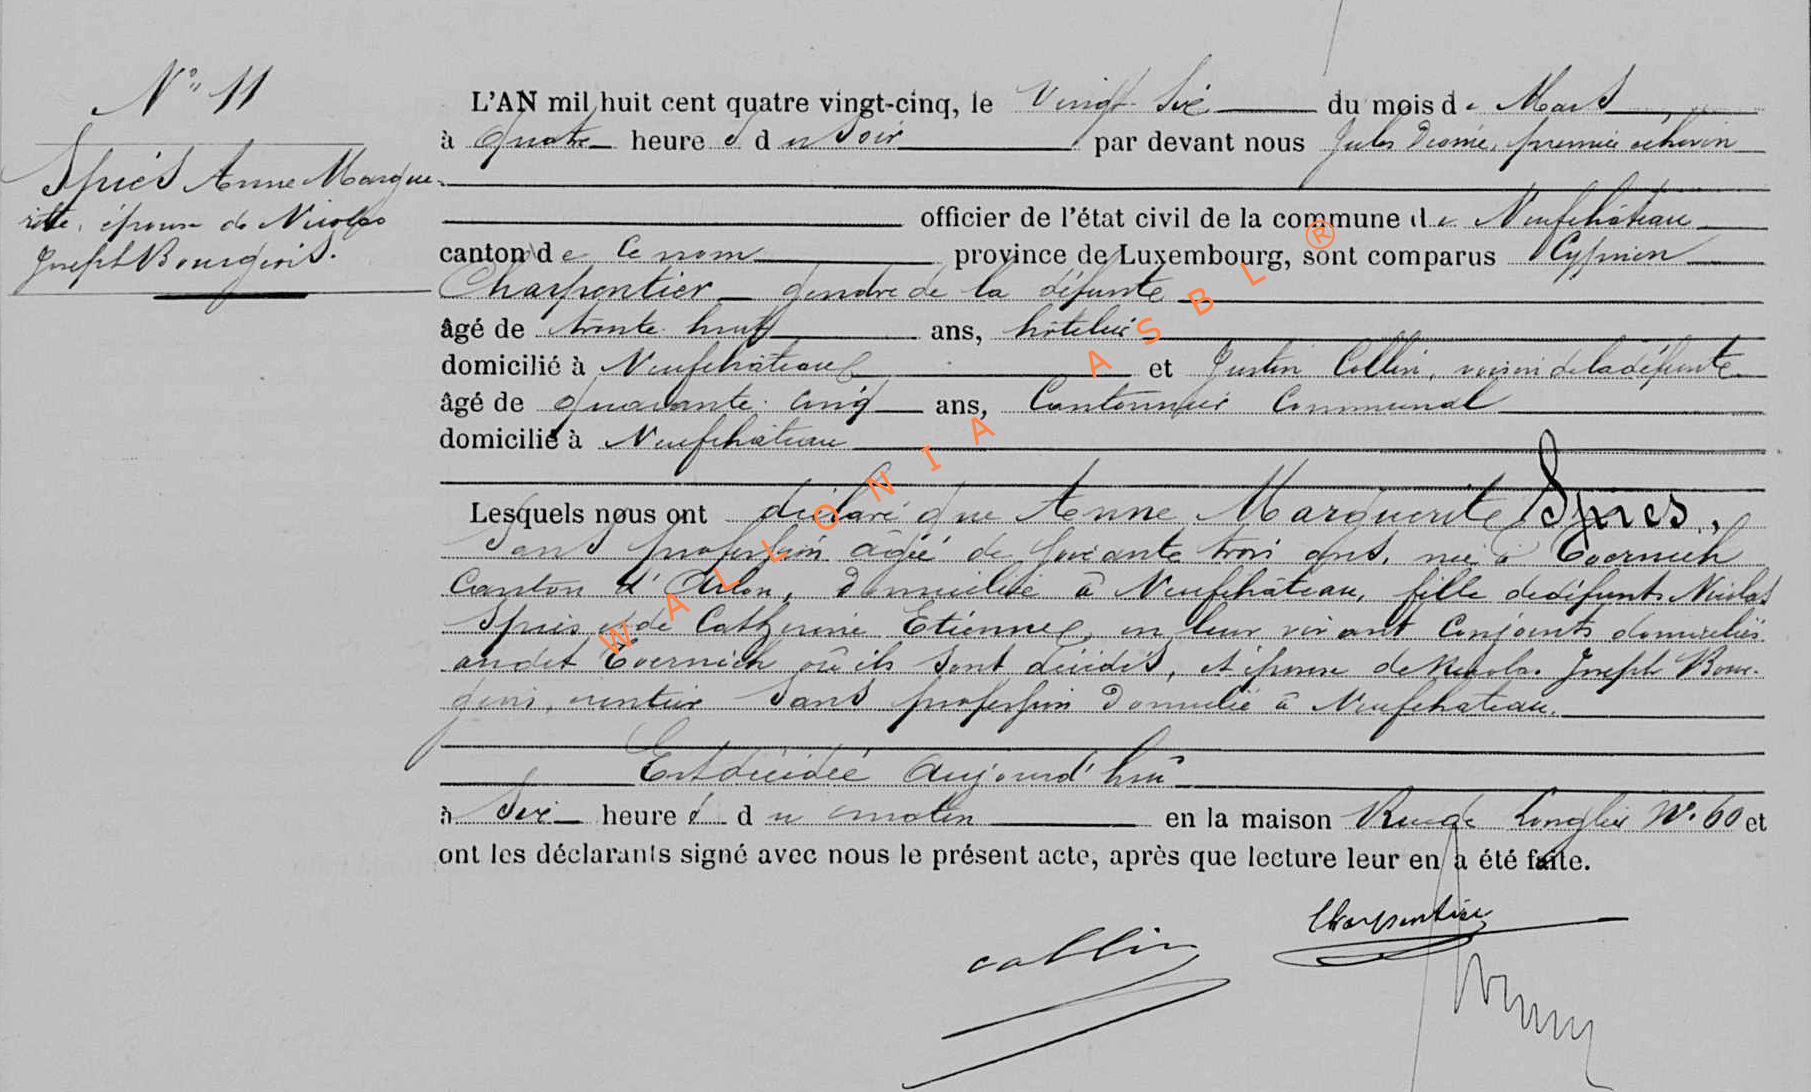 N° 11
Spies Anne Margue-
rite, épouse de Nicolas
Joseph Bourgeois.
L'AN mil huit cent quatre vingt-cinq, le vingt six du mois de Mars
à quatre heures du soir par devant nous Jules premier échevin
officier de l'état civil de la commune de Neufchâteau
canton de ce nom province de Luxembourg, sont comparus Cyprien
Charpentier gendre de la défunte
âgé de trente huit ans, hôtelier
domicilié à Neufchâteau et Justin Collin, voisin de la défunte
âgé de quarante cinq ans, Cantonnier Communal
domicilié à Neufchâteau
Lesquels nous ont déclaré que Anne Marguerite Spies,
sans profession âgée de soixante trois ans, née à Toernich
Canton d'Arlon, domiciliée à Neufchâteau, fille de défunts Nicolas
Spies et de Catherine Etienne, en leur vivant conjoints domiciliés
audit Toernich où ils sont décédés, et épouse de Nicolas Joseph Bour-
geois, rentier sans profession domicilié à Neufchateau.
Est décédée aujourd'hui
à six heures du matin en la maison Rue de Longlier N° 60 et
ont les déclarants signé avec nous le présent acte, après que lecture leur en a été faite.
Charpentier
collin
WALLONIA ASBL ®